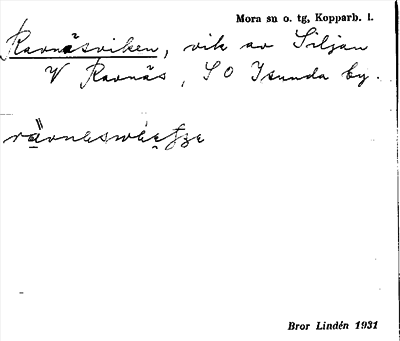 Mora sn o. tg, Kopparb. l.
Ravnäsviken, vik av Siljan
V Ravnäs, S O Isunda by.
Bror Lindén 1931